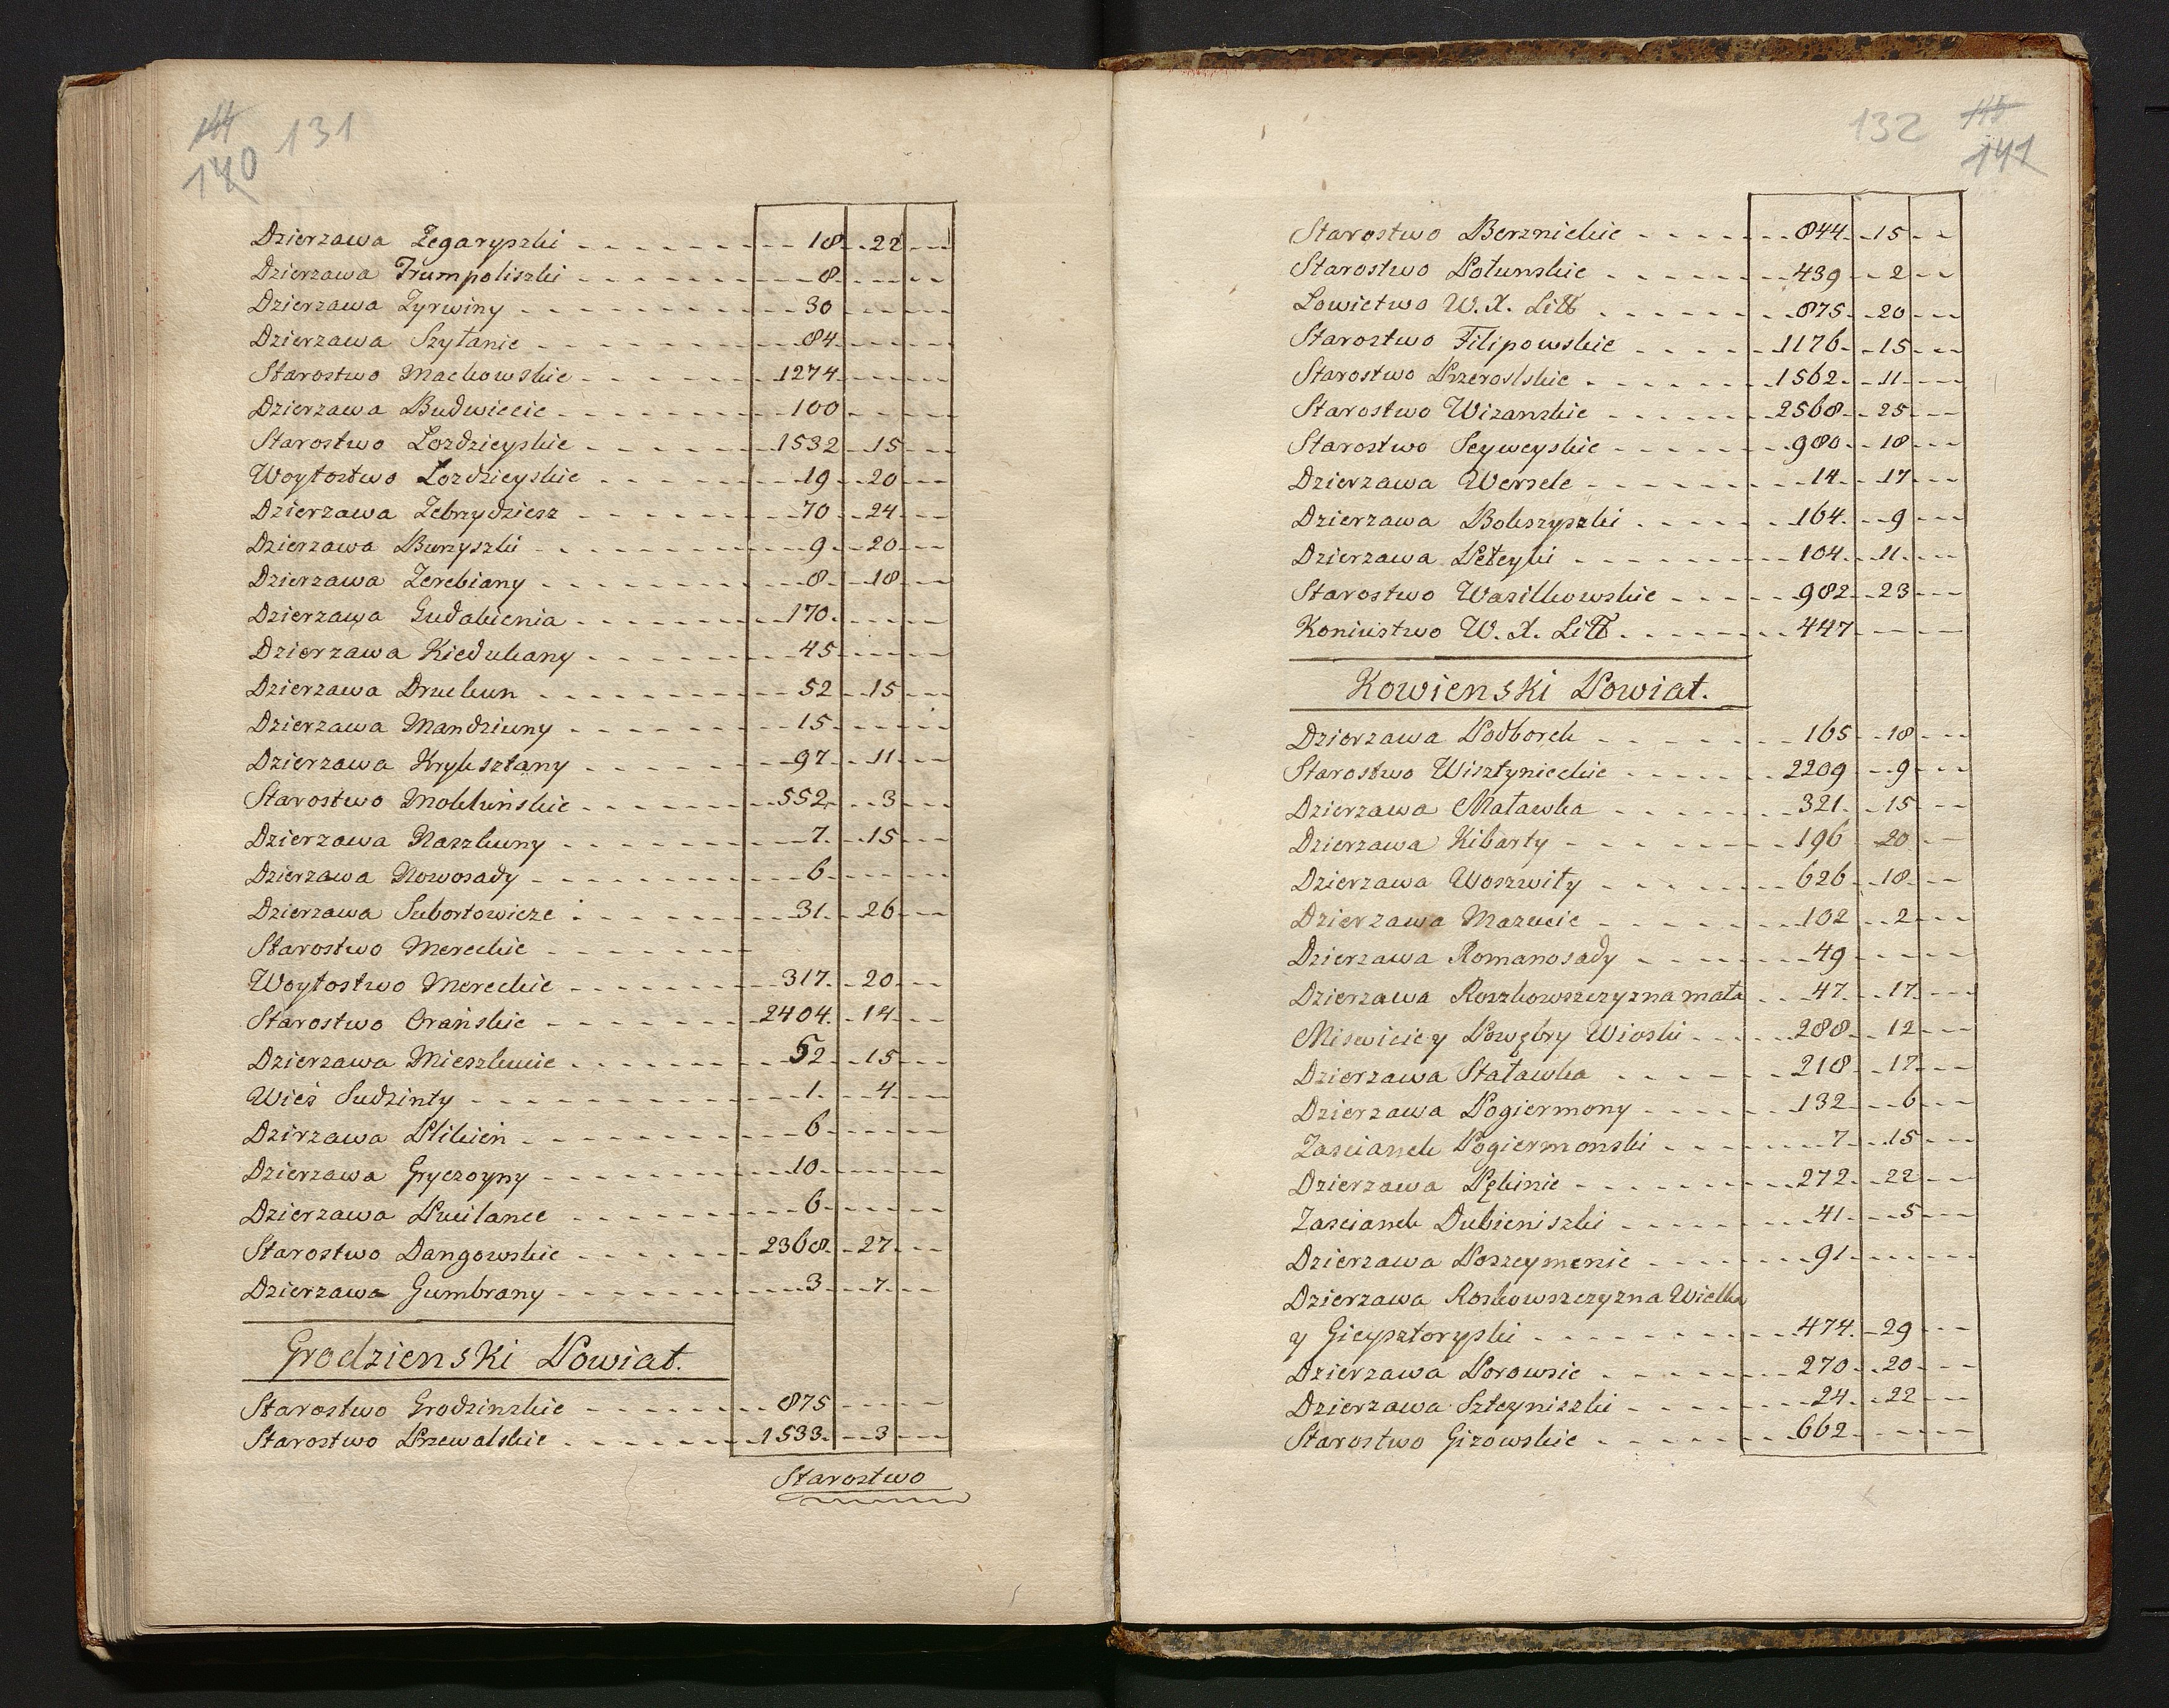 144 131
140
Dzierzawa Zegaryszki 18 22
Dzierzawa Trumpoliszki 8
Dzierzawa Zyrwiny 30
Dzierzawa Szytanie 84
Starostwo Mackowskie 1274
Dzierzawa Budwiecie 100
Starostwo Lozdzieyskie 1532 15
Woytostwo Lozdzieyskie 19 20
Dzierzawa Zebrzydziesz 70 24
Dzierzawa Burzyszki 9 20
Dzierzawa Zerebiany 8 18
Dzierzawa Gudakienia 170
Dzierzawa Kiedukany 45
Dzierzawa Druckun 52 15
Dzierzawa Mandziuny 15
Dzierzawa Kryksztany 97 11
Starostwo Mokłuńskie 552 3
Dzierzawa Naszkuny 7 15
Dzierzawa Nowosady 6
Dzierzawa Subortowicze 31 26
Starostwo Mereckie
Woytostwo Mereckie 317 20
Starostwo Orańskie 2404 14
Dzierzawa Mieszkucie 52 15
Wieś Sudzinty 1 4
Dzirzawa Plikień 6
Dzierzawa Gryczoyny 10
Dzierzawa Pucilance 6
Starostwo Dangowskie 2368 27
Dzierzawa Gumbrany 3 7
Grodzienski Powiat.
Starostwo Grodzinskie 875
Starostwo Przewalskie 1533 3
Starostwo
132 145
141
Starostwo Berznickie 844 15
Starostwo Potunskie 439 2
Lowictwo W. X. Litt 875 20
Starostwo Filipowskie 1176 15
Starostwo Przeroslskie 1562 11
Starostwo Wizanskie 2568 25
Starostwo Seyweyskie 980 18
Dzierzawa Wersele 14 17
Dzierzawa Bokszyszki 164 9
Dzierzawa Peteyki 104 11
Starostwo Wasilkowskie 982 23
Koniustwo W. X. Litt 447
Kowienski Powiat.
Dzierzawa Podborek 165 18
Starostwo Wisztynieckie 2209 9
Dzierzawa Matawka 321 15
Dzierzawa Kibarty 196 20
Dzierzawa Woszwity 626 18
Dzierzawa Mazucie 102 2
Dzierzawa Romanosady 49
Dzierzawa Roszkowszczyzna mała 47 17
Misiwicie y Powębry Wioski 288 12
Dzierzawa Statawka 218 17
Dzierzawa Pogiermony 132 6
Zascianek Pogiermonski 7 15
Dzierzawa Pękinie 272 22
Zascianek Dubieniszki 41 5
Dzierzawa Poszeymenie 91
Dzierzawa Roskowszczyzna Wielka
y Gieysztoryszki 474 29
Dzierzawa Porowsie 270 20
Dzierzawa Szteyniszki 24 22
Starostwo Gizowskie 662